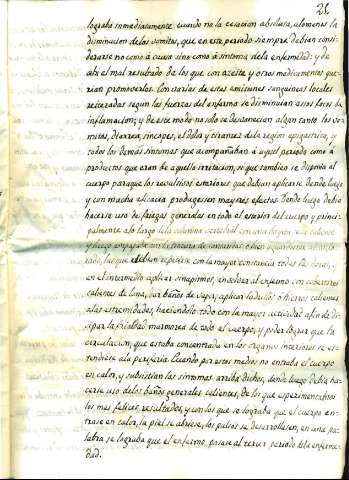 21.
lograba inmediatamente cuando no la cesacion absoluta, alomenos la
disminucion de los vomitos, que en este periodo siempre debian consi-
derarse no como á causa sino como á sintoma de la enfermedad: y de
ahi el mal resultado de los que con azeite y otros medicamentos que-
rian promoverlos. Con varias de estas emisiones sanguineas locales
reiteradas segun las fuerzas del enfermo se disminuian estos focos de
inflamacion; y de este modo no solo se desvanecian algun tanto los vo-
mitos, diarrea, sincopes, el dolor y tirantez de la region epigastrica, y
todos los demás sintomas que acompañaban á aquel periodo como á
productos que eran de aquella irritacion, si que tambien se disponia al
cuerpo paraque los revulsivos esteriores que debian aplicarse desde luego
y con mucha eficacia produgesen mayores efectos. Desde luego debia
hacerse uso de friegas generales en todo el esterior del cuerpo y princi-
palmente a lo largo de la columna vertebral con una bayeta caliente
y luego empapada en tintura de cantaridas ó bien
que debian repetirse con la mayor constancia todas las horas, y
en el intermedio aplicar sinapismos, envolver al enfermo con cobertores
calientes de lana, dar baños de vapor, aplicar ladrillos ó hierros calientes
a las estremidades, haciendolo todo con la mayor actividad afin de di-
sipar la frialdad marmorea de todo el cuerpo, y poder lograr que la
circulacion, que estaba concentrada en los organos interiores se es-
tendiere a la periferia. Cuando por estos medios no entraba el cuerpo
en calor, y subsistian los sintomas arriba dichos, desde luego debia ha-
cerse uso de los baños generales calientes, de los que esperimentabamos
los mas felices resultados, y con los que se lograba que el cuerpo en-
trase en calor, la piel se abriese, los pulsos se desarrollasen, en una pa-
labra se lograba que el enfermo pasase al tercer periodo de la enferme-
dad.